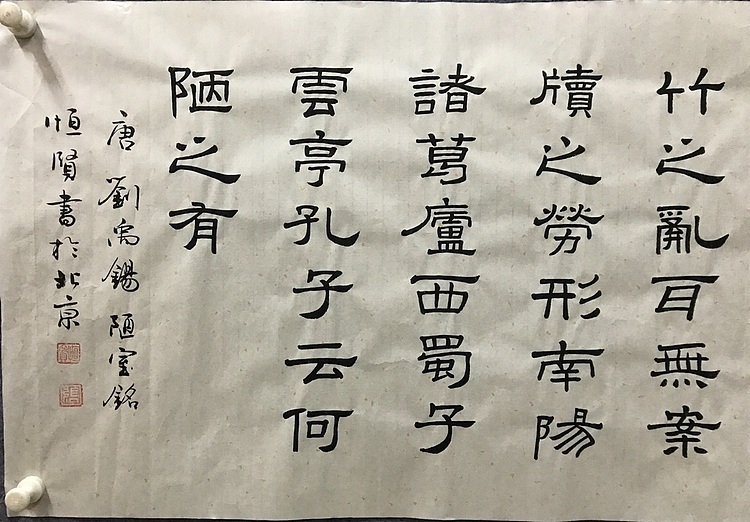 竹之亂耳無案
牘之勞形南陽
諸葛廬西蜀子
雲亭孔子云何
陋之有
唐劉禹錫陋室銘
恒賢書於北京